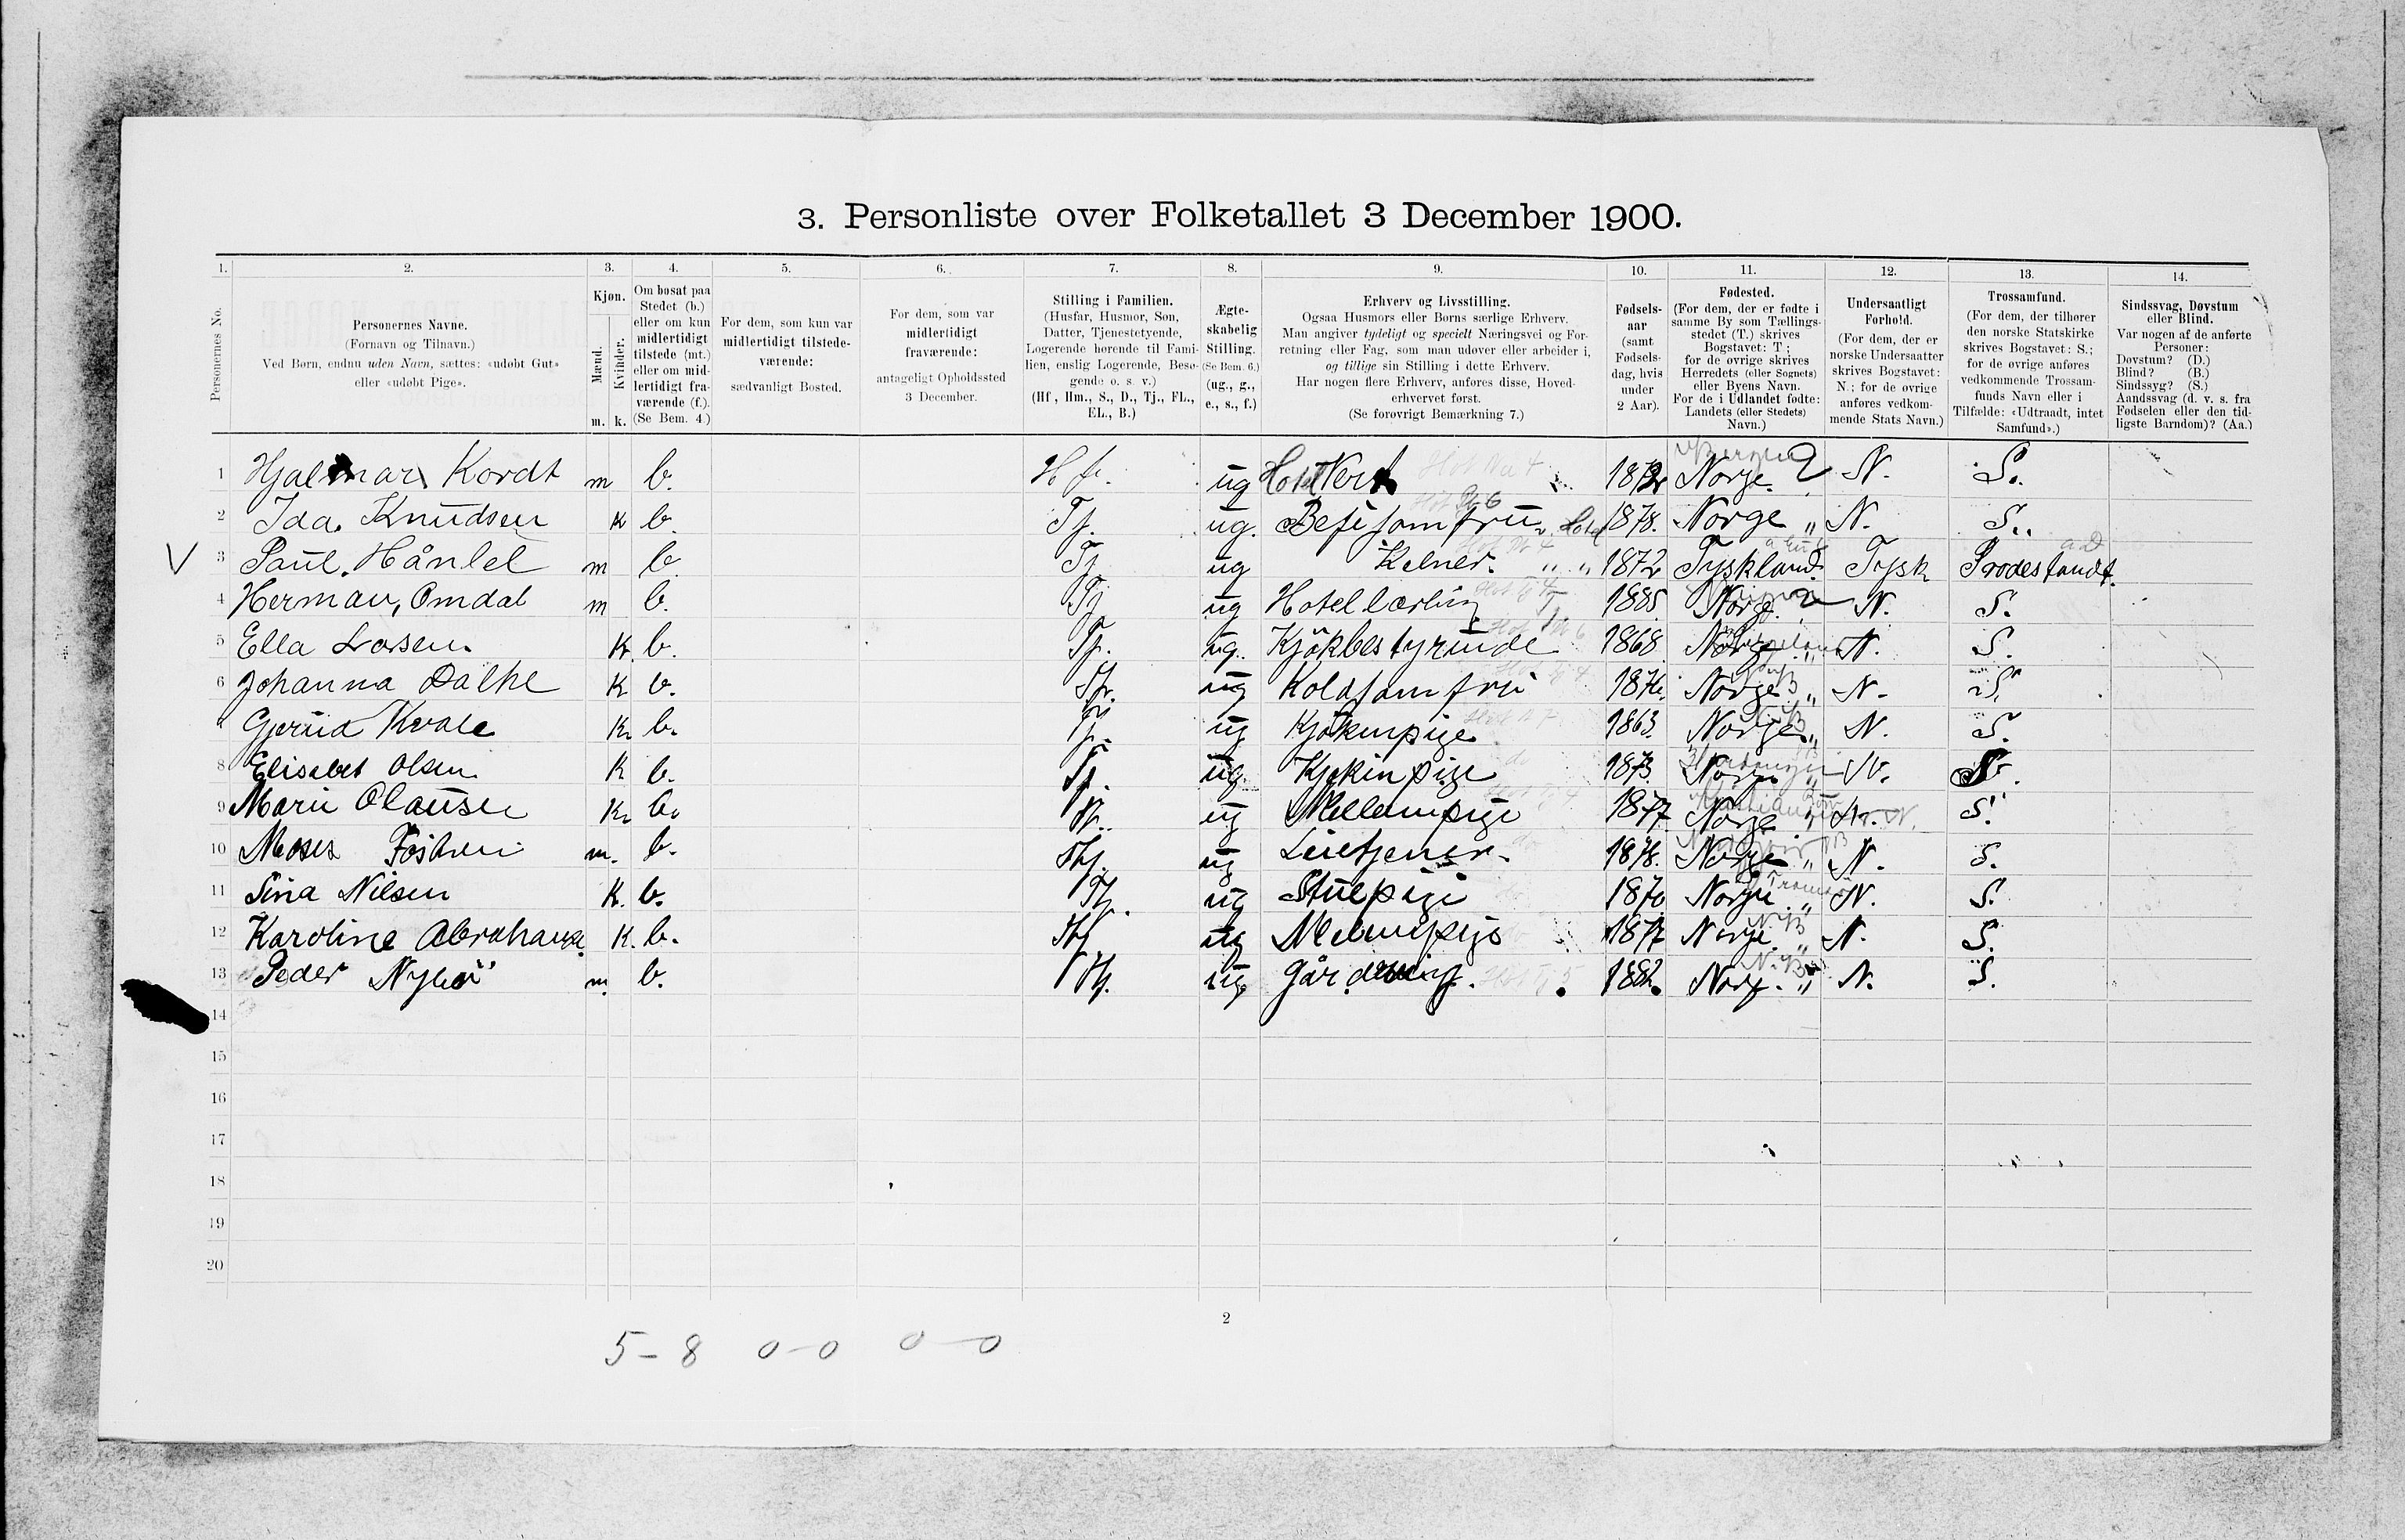 3. Personliste over Folketallet 3 December 1900.
1. 2. 3. 4. 5. 6. 7. 8. 9. 10. 11. 12. 13. 14.
Personernes No.
Personernes Navne.
(Fornavn og Tilnavn.)
Ved Børn, endnu uden Navn, sættes: «udøbt Gut»
eller «udøbt Pige».
Kjøn.
Mænd.
Kvinder.
m. k.
Om bosat paa
Stedet (b.)
eller om kun
midlertidigt
tilstede (mt.)
eller om mid-
lertidigt fra-
værende (f.).
(Se Bem. 4.)
For dem, som kun var
midlertidigt tilstede-
værende:
sædvanligt Bosted.
For dem, som var
midlertidigt
fraværende:
antageligt Opholdssted
3 December.
Stilling i Familien.
(Husfar, Husmor, Søn,
Datter, Tjenestetyende,
Logerende hørende til Fami-
lien, enslig Logerende, Besø-
gende o. s. v.)
(Hf, Hm., S., D., Tj., FL.,
EL., B.)
Ægte-
skabelig
Stilling.
(Se Bem. 6.)
(ug., g.,
e., s., f.)
Erhverv og Livsstilling.
Ogsaa Husmors eller Børns særlige Erhverv.
Man angiver tydeligt og specielt Næringsvei og For-
retning eller Fag, som man udøver eller arbeider i,
og tillige sin Stilling i dette Erhverv.
Har nogen flere Erhverv, anføres disse, Hoved-
erhvervet først.
(Se forøvrigt Bemærkning 7.)
Fødsels-
aar
(samt
Fødsels-
dag, hvis
under
2 Aar).
Fødested.
(For dem, der er fødte i
samme By som Tællings-
stedet (T.) skrives
Bogstavet: T;
for de øvrige skrives
Herredets (eller Sognets)
eller Byens Navn.
For de i Udlandet fødte:
Landets (eller Stedets)
Navn.)
Undersaatligt
Forhold.
(For dem, der er
norske Undersaatter
skrives Bogstavet:
N.; for de øvrige
anføres vedkom-
mende Stats Navn.)
Trossamfund.
(For dem, der tilhører
den norske Statskirke
skrives Bogstavet: S.;
for de øvrige anføres
vedkommende Trossam-
funds Navn eller i
Tilfælde: «Udtraadt, intet
Samfund».)
Sindssvag, Døvstum
eller Blind.
Var nogen af de anførte
Personer:
Døvstum? (D.)
Blind? (B.)
Sindssyg? (S.)
Aandssvag (d. v. s. fra
Fødselen eller den tid-
ligste Barndom)? (Aa.)
1 Hjalmar Kordt m b. Hf. ug Hotel Vert 1872 Norge. N. S.
2 Ida. Knudsen k b. Tj. ug. 1878. Norge „ N. S.
V 3 Paul. Hånlel m b. Tj ug Kelner. „ „ 1872 Tyskland. Tysk Prodestandt.
4 Herman, Omdal m b. Tj ug Hotel Lærling 1885 Norge. N. S.
5 Ella Larsen. K. b. Tj. ug. Kjøkbestyrinde 1868 Norge „ N. S.
6 Johanna Dalhe K b. Tj. ug Koldjomfru 1876. Norge „ N. S.
Kvale K. b. Tj. ug Kjøkenpige. 1863. Norge „ N. S.
8 Elisabet Olsen K b. Tj. ug. Kjøkinpige 1873. Norge „ N. S.
9 Marie Olausen K. b. Tj. ug Mellempige 1877 Norge „ N. S.
10 Moses m. b. Tj. ug 1878. Norge „ N. S.
11 Sina Nilsen K. b. Tj. ug Stuepige 1870 Norge. „ N. S.
12 Karoline K. b. Tj. ug 1877 Norge. „ N. S.
13 Peder m. b. Tj. ug. 1882. Norge. „ N. S.
14
15
16
17
18
19
20
2
5 - 8 0 - 0 0 - 0